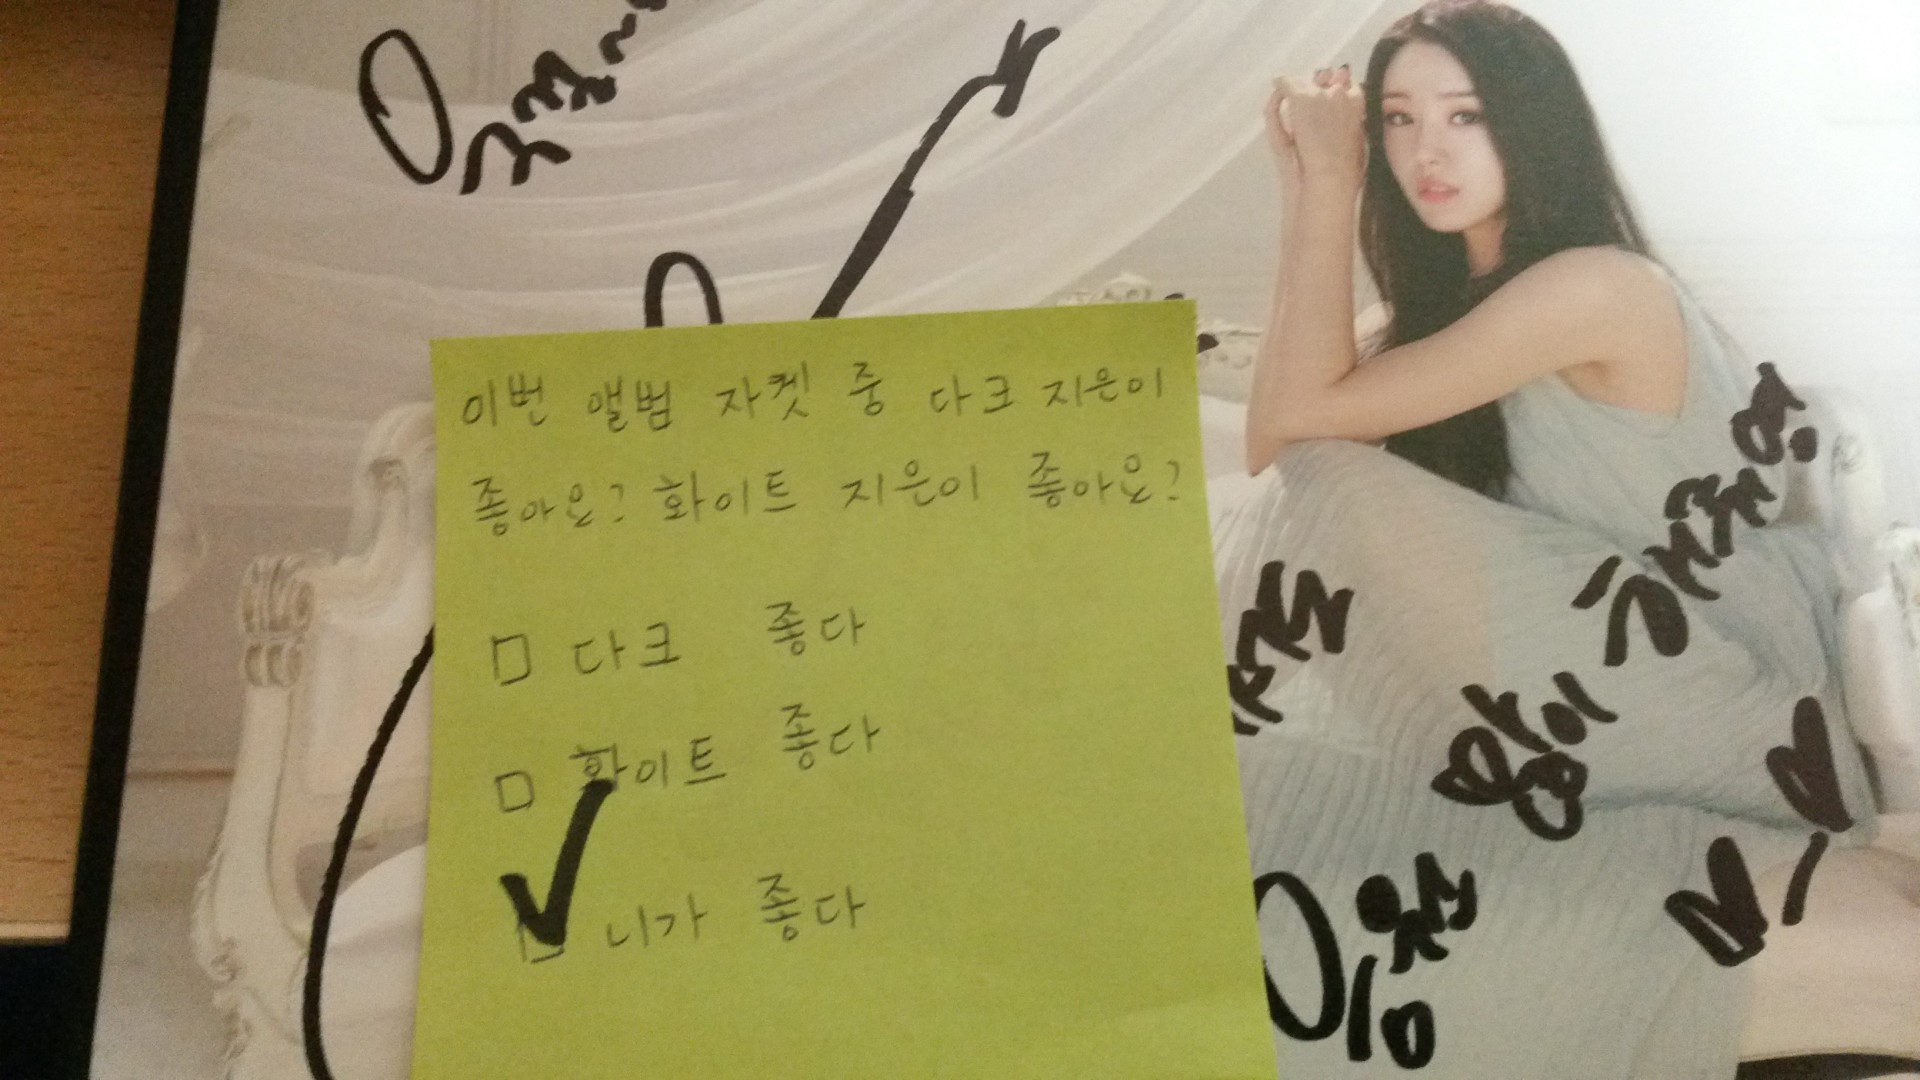 이번 앨범 자켓 중 다크 지은이
좋아요? 화이트 지은이 좋아요?
다크 좋다
화이트 좋다
니가 좋다
많이 해줘영